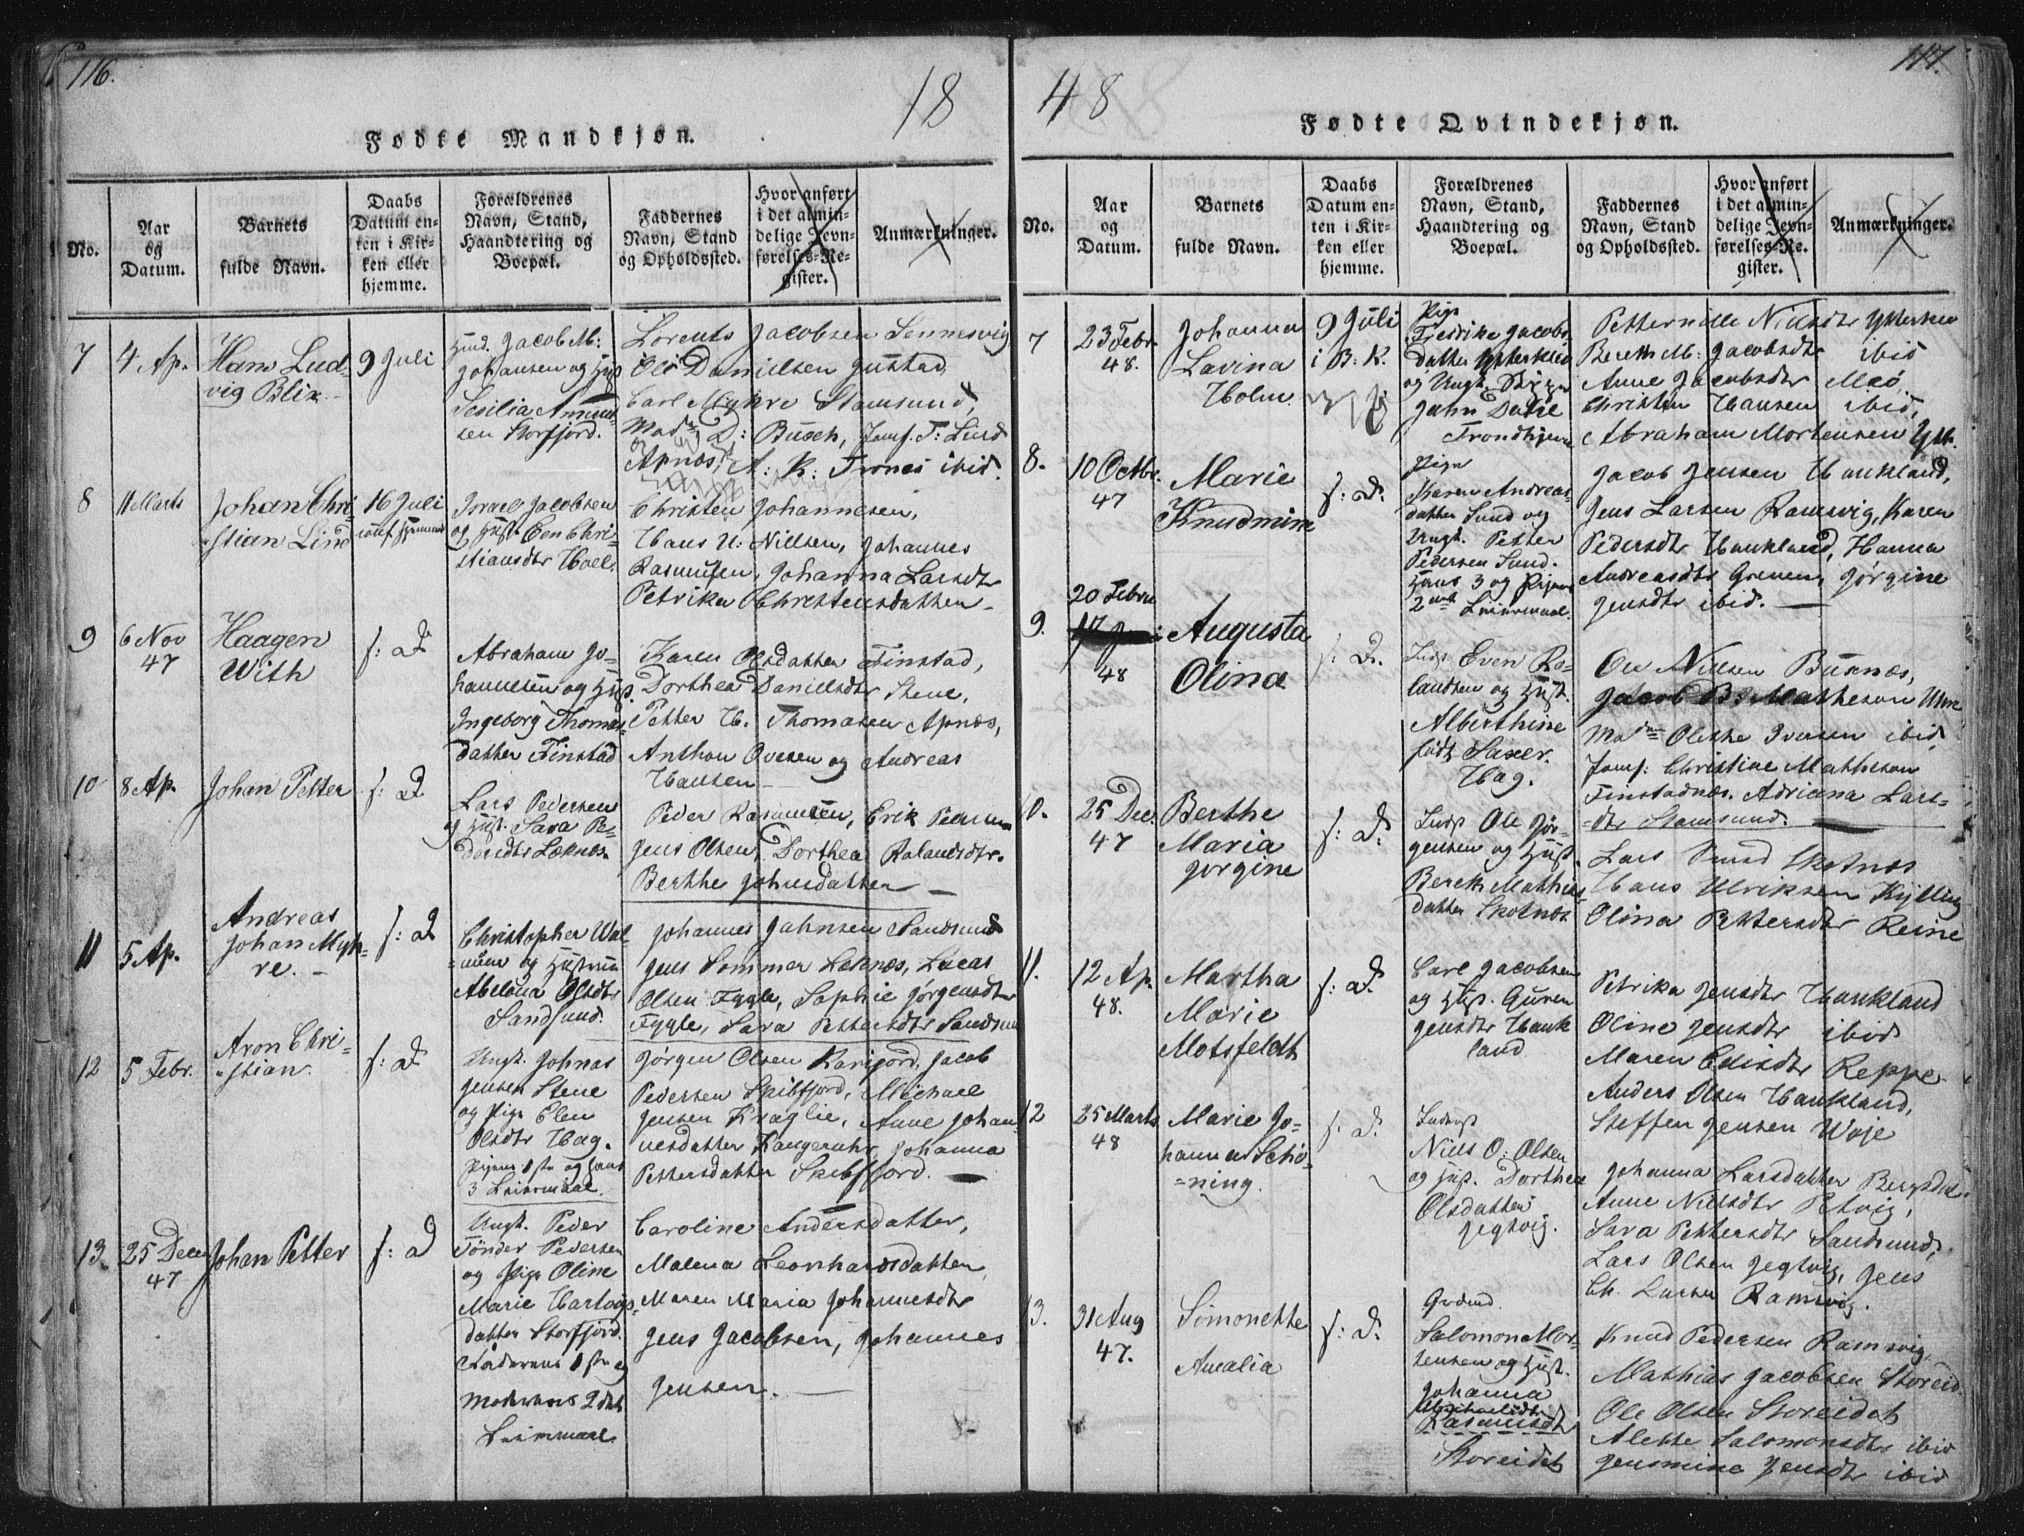 116.
18
Fødte Mandkjøn.
No.
Aar
og
Datum.
Barnets
fulde Navn.
Daabs
Datum en-
ten i Kir-
ken eller
hjemme.
Forældrenes
Navn, Stand,
Haandtering og
Boepæl.
Faddernes
Navn, Stand
og Opholdssted.
Hvor anført
i det almin-
delige Jevn-
førelses-Re-
gister.
Anmærkninger.
7
4 Ap.
Hans Lud-
vig Blix
9 Juli
Jacob M:
Johansen og
Sesilia
sen Storfjord.
Lorents Jacobsen Sennesvig
Ole Danielsen Gustad,
Carl Myhre Stamsund,
D: Busch, Jomf. T: Lind
Apnæs, A: K: Trones ibid.
8
11 Marts
Johan Chri-
stian Lind
16 Juli
Israel Jacobsen
og Chri-
stiansdtr Hoel
Christen Johannesen,
Hans N: Nilsen, Johannes
Rasmusen, Johanna Larsdtr
Petrika Christensdatter
9
6 Nov
47
Haagen
With
f: D
Abraham Jo-
hannesen og
Ingeborg Thomas-
datter Finstad
Karen Olsdatter Finstad,
Dorthea Danielsdtr Stene,
Petter H. Thomasen Apnæs,
Anthon Ovesen og Andreas
Hansen
10
8 Ap.
Johan Petter
f: D
Lars Pedersen
og Sara Pe-
dersdtr Leknes
Peder Rasmusen, Erik Pedersen
Jens Olsen, Dorthea Rolandsdtr.
Berthe Johnsdatter
11
5 Ap.
Andreas
Johan Myh-
re.
f: D
Christopher Wal-
og Hustru
Abelona Olsdtr
Sandsund.
Johannes Jahnsen Sandsund
Jens Sommer Leknæs, Lucas
Olsen Fygle, Sophie Jørgensdtr
Fygle, Sara Pettersdtr Sandsund
12
5 Febr.
Aron Chri-
stian.
f: D
Ungk. Johnas
Jensen Stene
og Pige Elen
Olsdtr Hag.
Pigens 1ste og hans
3 Leiermaal.
Jørgen Olsen Jacob
Pedersen Skibfjord, Michael
Jensen Anne Johan-
nesdatter Johanna
Pettersdatter Skibfjord.
13.
25 Decem
47
Johan Petter
f: D
Ungk. Peder
Tønder Pedersen
og Pige Oline
Marie Hartvigs-
datter Storfjord.
Faderens 1ste og
Moderens 2det
Leiermaal.
Caroline Andersdatter,
Malena Leonhardsdatter
Maren Maria Johannesdtr
Jens Jacobsen, Johannes
Jensen.
117.
48
Fødte Qvindekjøn.
No.
Aar
og
Datum.
Barnets
fulde Navn.
Daabs
Datum en-
ten i Kir-
ken eller
hjemme.
Forældrenes
Navn, Stand,
Haandtering og
Boepæl.
Faddernes
Navn, Stand
og Opholdssted.
Hvor anført
i det almin-
delige Jevn-
førelses-Re-
gister.
Anmærkninger.
7
23 Febr.
48.
Johanna
Lavina
Holm
9 Juli
i B: K.
Pige
Fredrike Jacobs-
datter
og Ungk.
Jahn
Trondhjem
Petternelle Nielsdtr
Bereth M: Jacobsdtr ibid
Anne Jacobsdtr
Christen Hansen ibid,
Abraham Mortensen
8.
10 Octbr.
47
Marie
Knudmine
f: D.
Pige
Karen Andreas-
datter Sund og
Ungk. Petter
Pedersen Sund.
Hans 3 og Pigens
2det Leiermaal.
Jacob Jensen Haukland,
Jens Larsen Ramsvig, Karen
Pedersdtr Haukland, Hanna
Andreasdtr Jørgine
Jensdtr ibid.
9.
20 Febru
48
Augusta
Olina
f: D.
Even Ro-
landsen og
Alberthine
født Saxer.
Hag.
Ole Nielsen Buxnæs,
Jacob B: Matheson
Olethe Iversen ibid,
Jomf: Christine Matheson
Finstadnæs, Adriana Lars-
dtr Stamsund.
10.
25 Dec.
47
Berthe
Maria
Jorgine
f: D.
Ole Jør-
gensen og
Bereth Mathias
datter Skotnæs
Lars Sund Skotnæs
Hans Ulriksen Kylling
Olina Pettersdtr Reine
11.
12 Ap.
48.
Martha
Marie
Motsfeldt
f: D.
Carl Jacobsen
og Guren
Jensdtr Hauk
land
Petrika Jensdtr Haukland
Oline Jensdtr ibid
Maren Reppe
Anders Olsen Haukland,
Steffen Jensen Woje
12
25 Marts
48
Marie Jo-
hanna Schø-
ning.
f: D.
Niels O: Olsen
og Dorthea
Olsdatter
Jegtvig.
Johanna Larsdatter Bergsdal
Anne Nielsdtr Petvig,
Sara Pettersdtr Sandsund,
Lars Olsen Jegtvig, Jens
Ch. Larsen Ramsvig.
13.
31 Aug
47.
Simonette
Amalia
f: D.
Salomon Mor-
tensen og
Johanna
Rasmusdtr
Storeidet
Knud Pedersen Ramsvig,
Mathias Jacobsen Storeid
Ole Olsen Storeidet
Alette Salomonsdtr ibid
Jensmine Jensdtr ibid